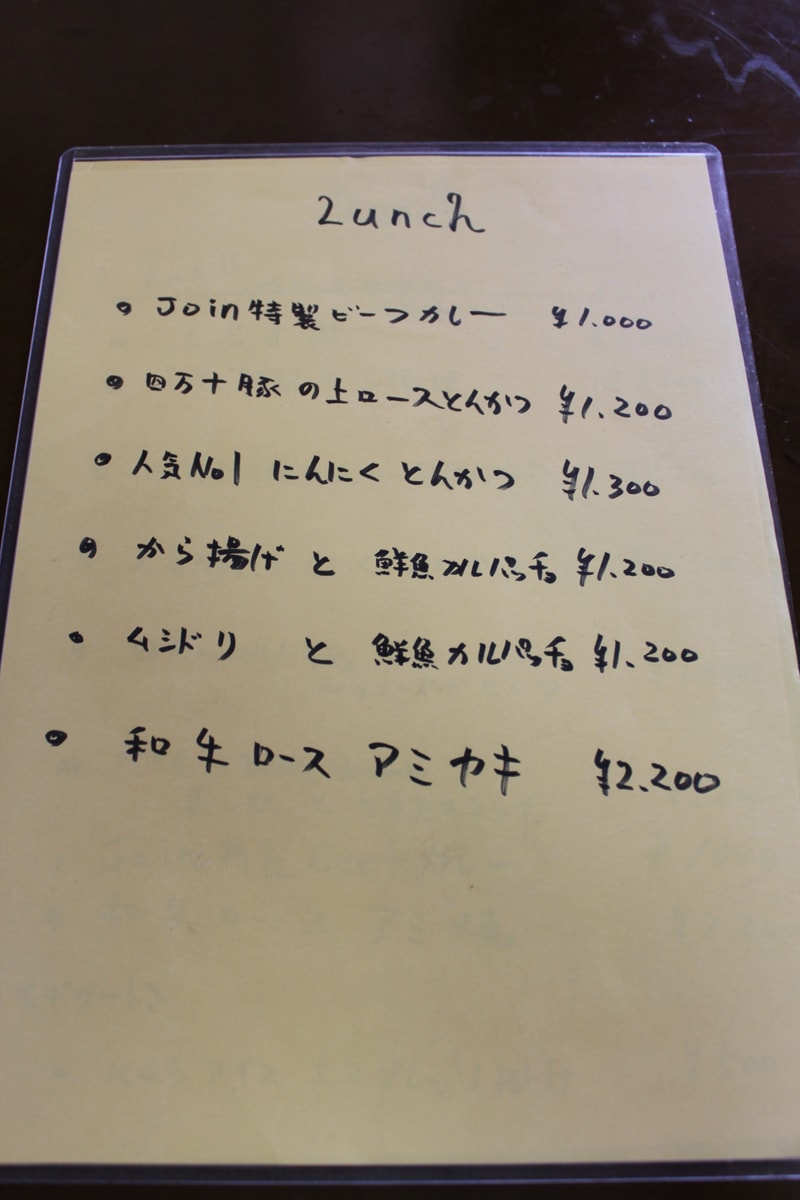 Lunch
• Join特製ビーフカレー ¥1.000
• 四万十豚の上ロースとんかつ ¥1.200
• 人気No1 にんにくとんかつ ¥1.300
• から揚げ と 鮮魚カルパッチョ ¥1.200
• ムシドリ と 鮮魚カルパッチョ ¥1.200
• 和牛ロース アミヤキ ¥2.200